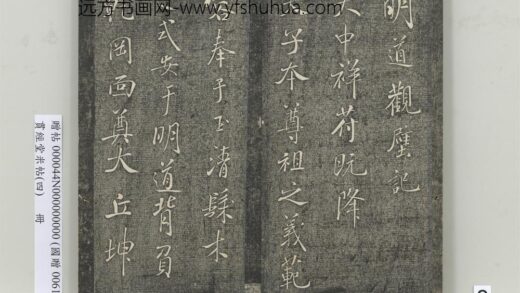 远方书画网-www.yfshuhua.com
明道觀壁記
大中祥苻既降
子本尊祖之義範
奉予玉清髹木
式安于明道背負
岡面奠大丘坤
贈帖 000044N000000000 (國贈 0061
賞經堂米帖(四) 冊